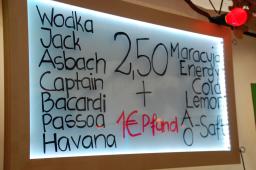 Wodka
Jack
Asbach
Captain
Bacardi
Passoa
Havana
2,50
+
1€ Pfand
Maracuja
Energy
Cola
Lemon
A-
O-Saft